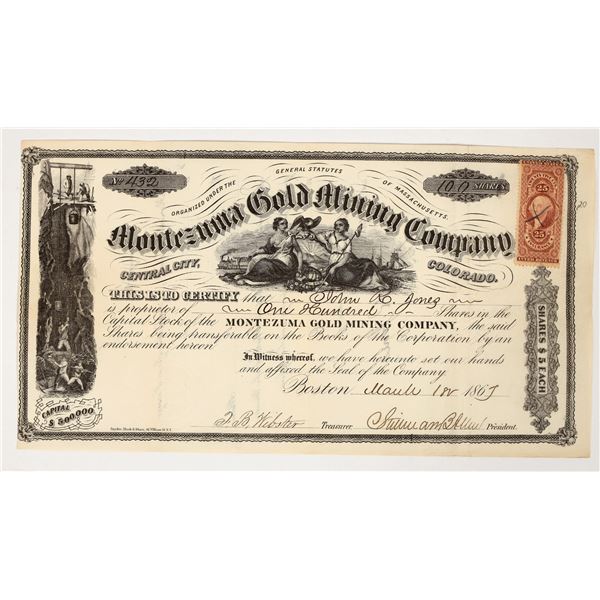 No 432
100 SHARES
GENERAL STATUTES
ORGANIZED UNDER THE OF MASSACHUSETTS.
Montezuma Gold Mining Company
CENTRAL CITY, COLORADO.
THIS IS TO CERTIFY that John
is proprietor of One Hundred Shares in the
Capital Stock of the MONTEZUMA GOLD MINING COMPANY, the said
Shares being transferable on the Books of the Corporation by an
endorsement hereon
In Witness whereof, we have hereunto set our hands
and affixed the Seal of the Company
Boston March 186
J. B. Webster Treasurer President.
CAPITAL
$500,000
SHARES $5 EACH
25
25
20